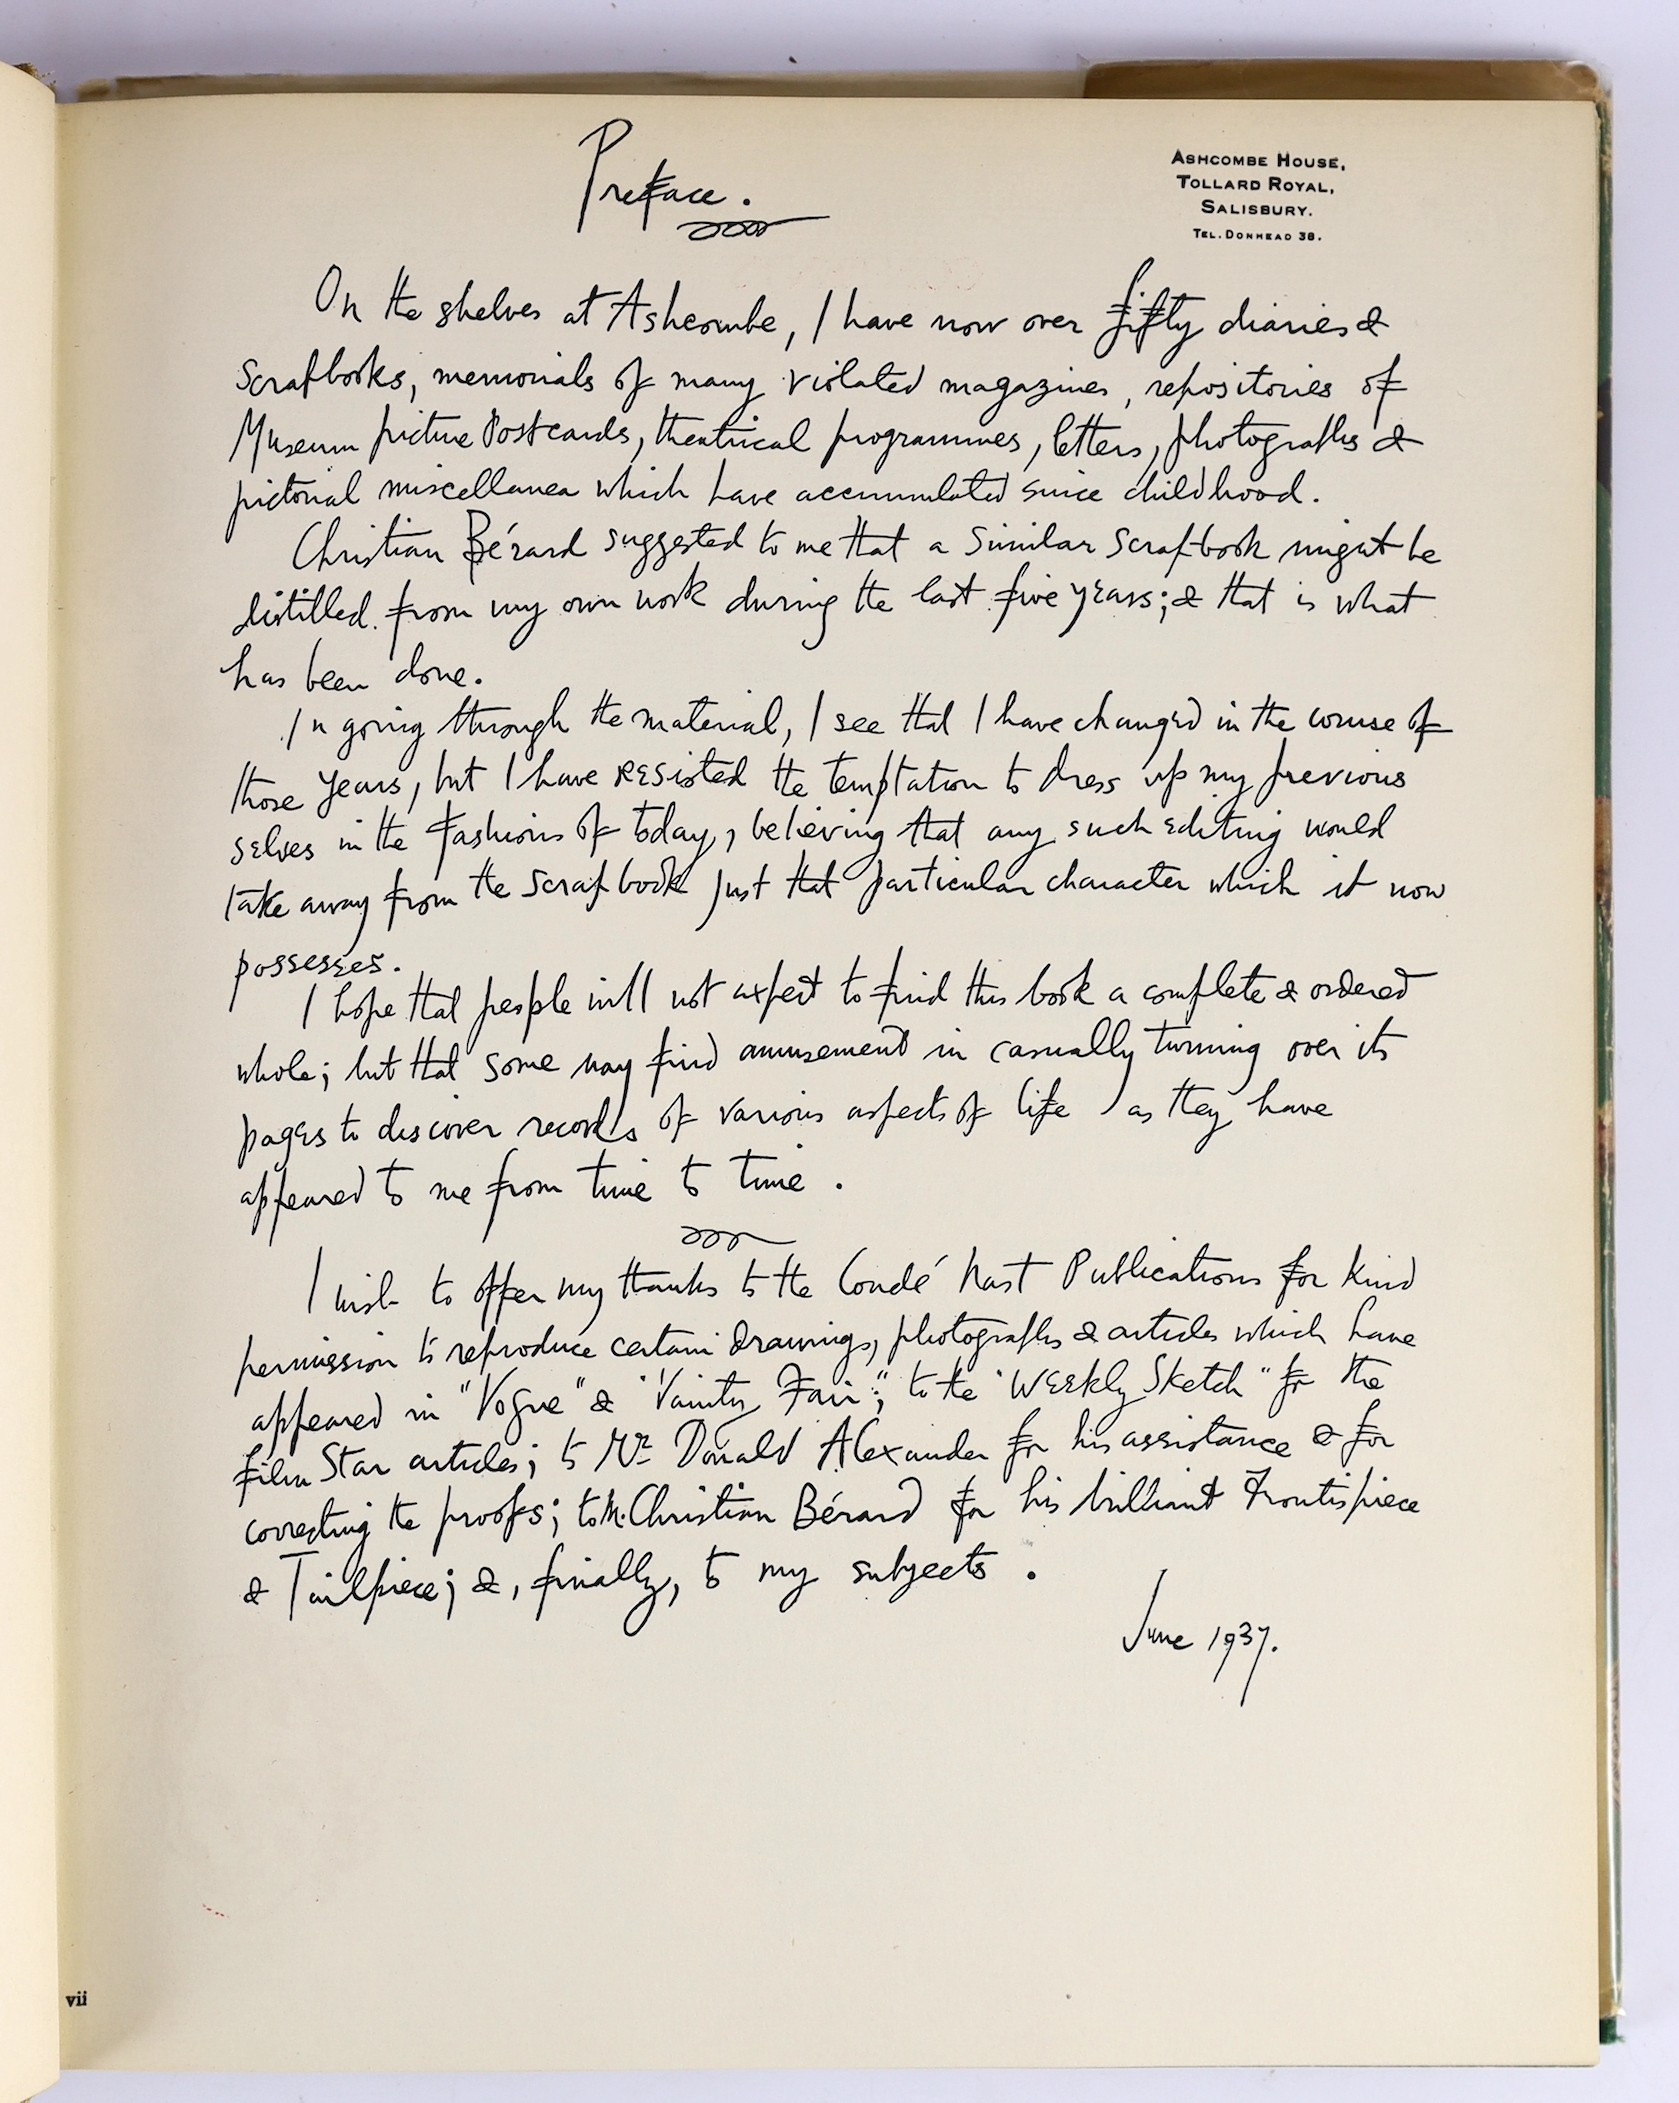 Preface.
ASHCOMBE HOUSE,
TOLLARD ROYAL,
SALISBURY.
TEL. DONHEAD 38.
On the shelves at Ashcombe, I have now over fifty diaries &
scrapbooks, memorials of many violated magazines, repositories of
Museum picture Postcards, theatrical programmes, letters, photographs &
pictorial miscellanea which have accumulated since childhood.
Christian Bérard suggested to me that a similar scrapbook might be
distilled from my own work during the last five years; & that is what
has been done.
In going through the material, I see that I have changed in the course of
those years, but I have resisted the temptation to dress up my previous
selves in the fashions of today, believing that any such editing would
take away from the scrapbook just that particular character which it now
possesses.
I hope that people will not expect to find this book a complete & ordered
whole; but that some may find amusement in casually turning over its
pages to discover records of various aspects of life as they have
appeared to me from time to time.
I wish to offer my thanks to the Condé Nast Publications for kind
permission to reproduce certain drawings, photographs & articles which have
appeared in "Vogue" & "Vanity Fair"; to the "Weekly Sketch" for the
film Star articles; to Mr. Donald Alexander for his assistance & for
correcting the proofs; to M. Christian Bérard for his brilliant Frontispiece
& Tailpiece; &, finally, to my subjects.
June 1937.
vii